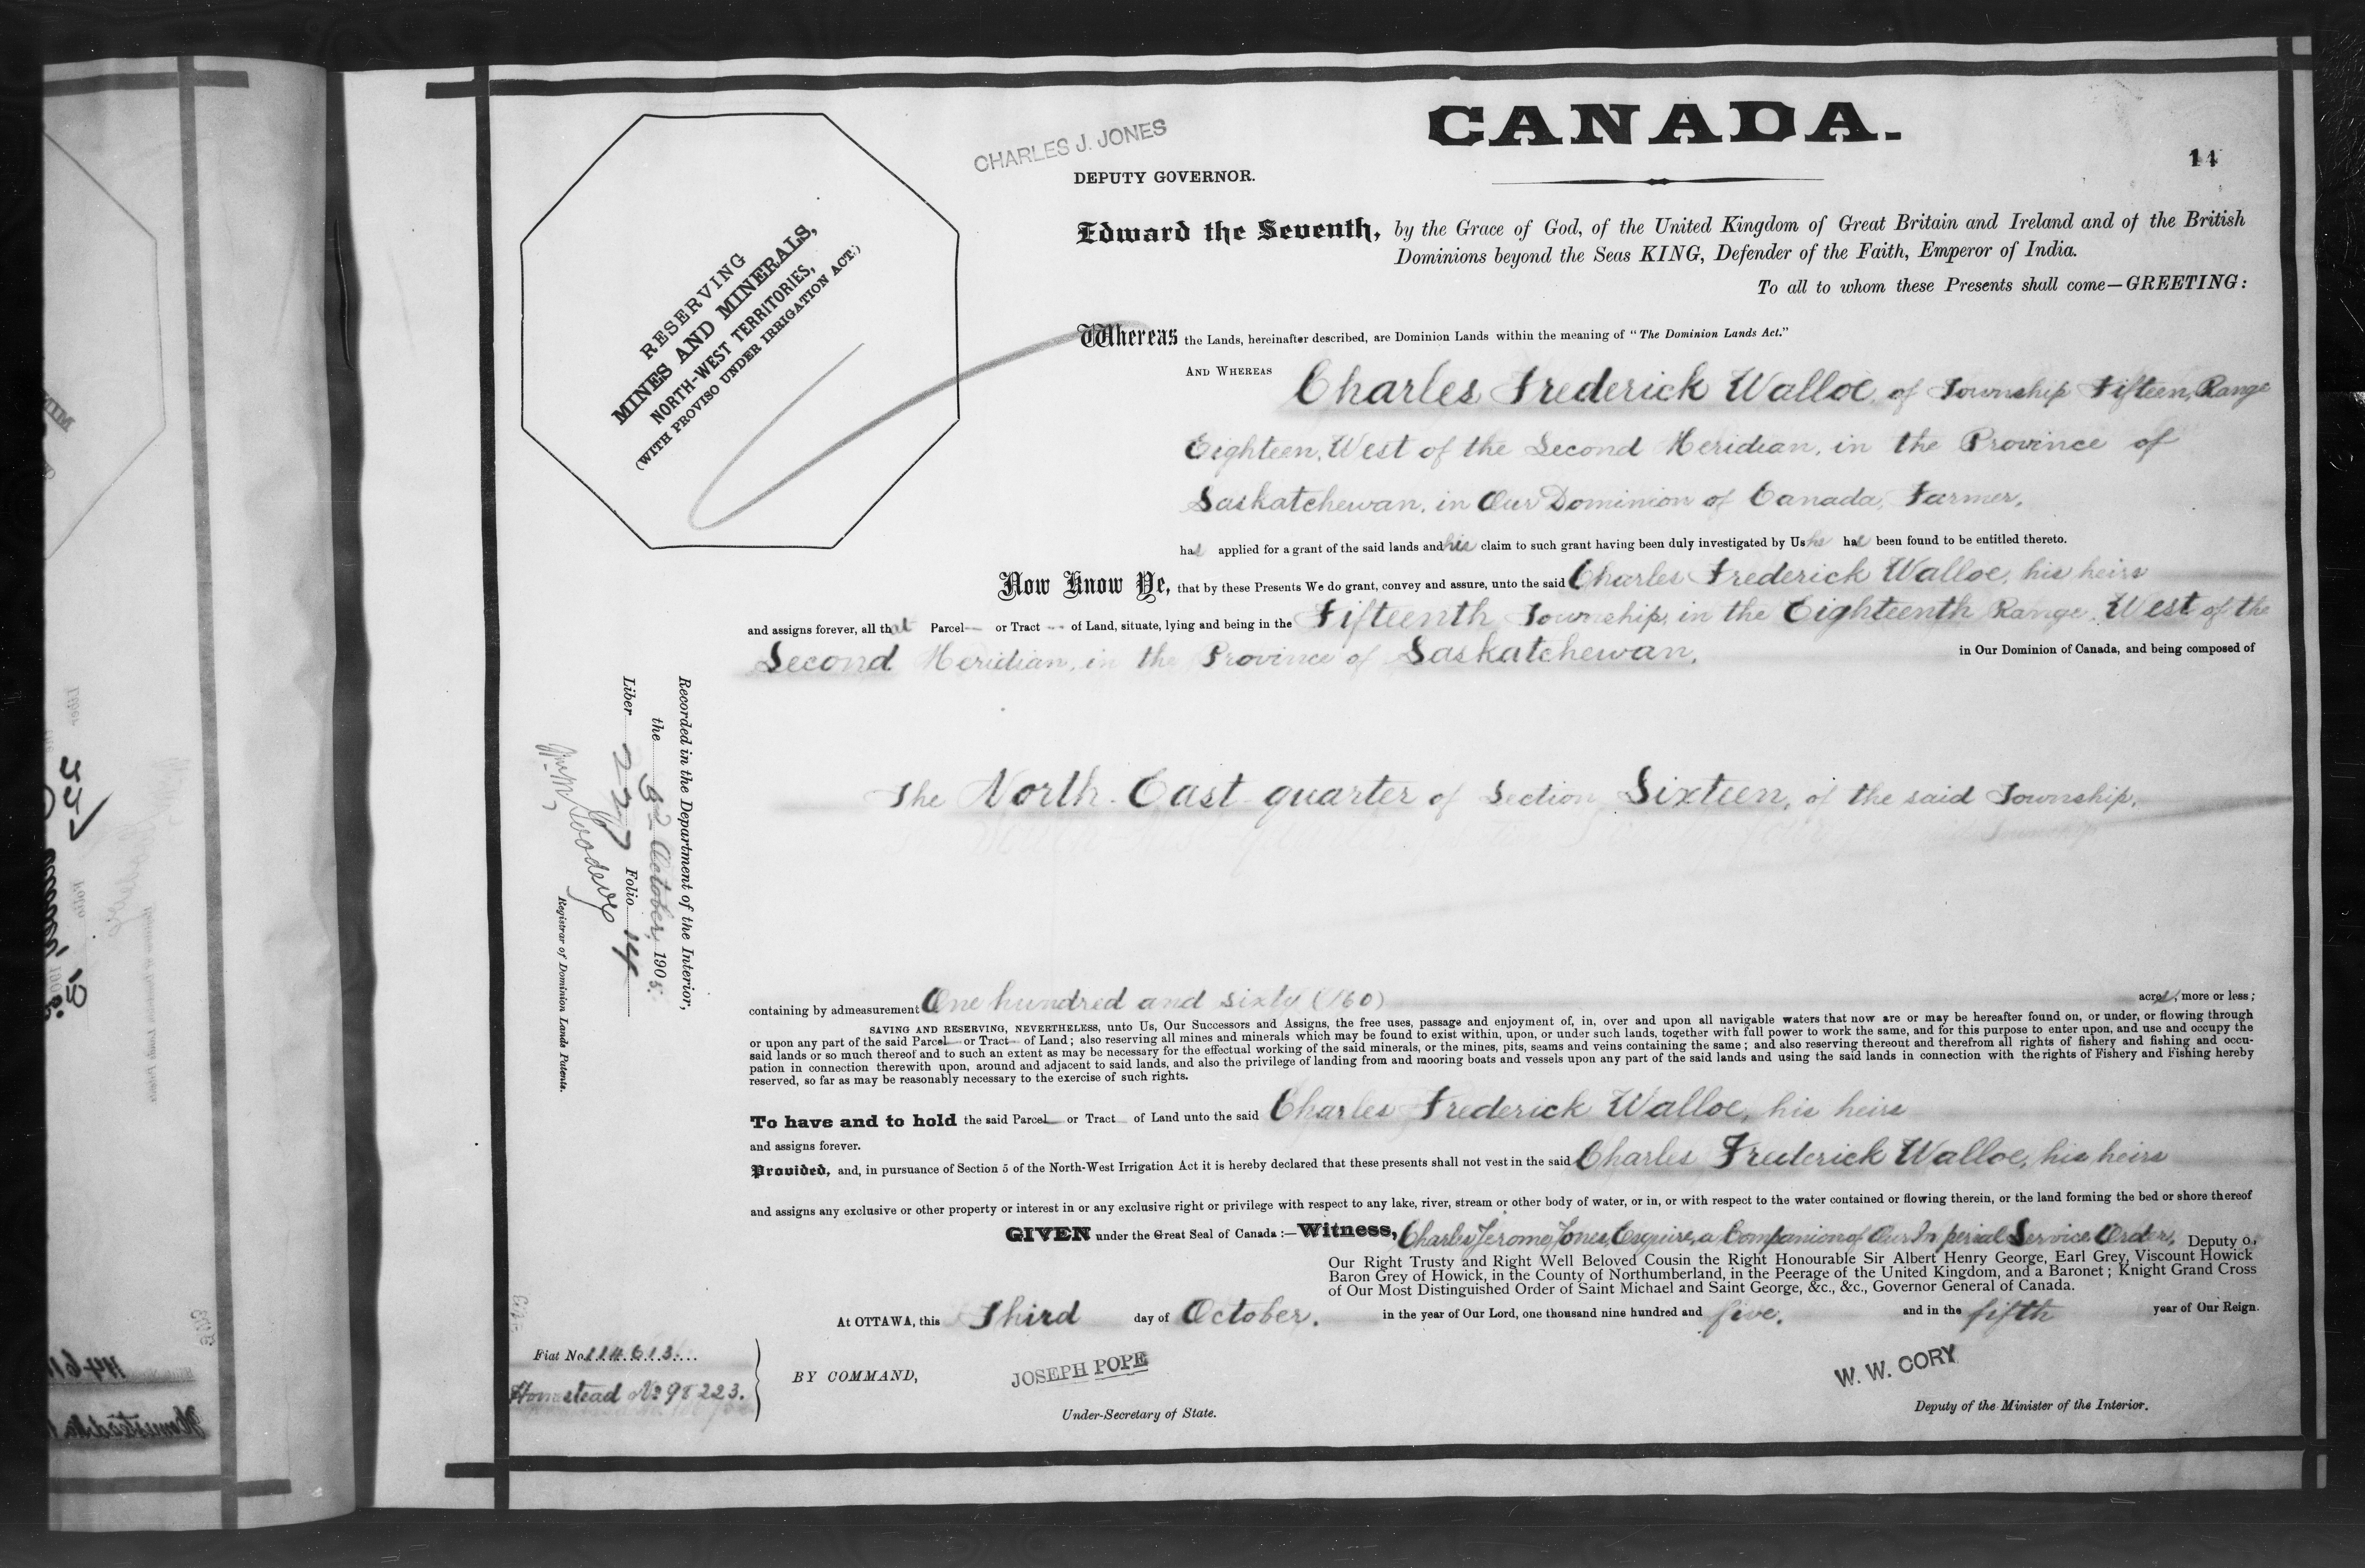 CHARLES J. JONES
DEPUTY GOVERNOR.
CANADA.
14
RESERVING
MINES AND MINERALS,
NORTH-WEST TERRITORIES,
(WITH PROVISO UNDER IRRIGATION ACT.)
Edward the Seventh, by the Grace of God, of the United Kingdom of Great Britain and Ireland and of the British
Dominions beyond the Seas KING, Defender of the Faith, Emperor of India.
To all to whom these Presents shall come—GREETING:
Whereas the Lands, hereinafter described, are Dominion Lands within the meaning of "The Dominion Lands Act."
AND WHEREAS Charles Frederick Walloe, of Township Fifteen, Range
Eighteen, West of the Second Meridian, in the Province of
Saskatchewan, in Our Dominion of Canada, Farmer,
has applied for a grant of the said lands and his claim to such grant having been duly investigated by Us he has been found to be entitled thereto.
Now Know Ye, that by these Presents We do grant, convey and assure, unto the said Charles Frederick Walloe, his heirs
and assigns forever, all that Parcel or Tract of Land, situate, lying and being in the Fifteenth Township, in the Eighteenth Range, West of the
Second Meridian, in the Province of Saskatchewan, in Our Dominion of Canada, and being composed of
The North East quarter of Section Sixteen, of the said Township,
containing by admeasurement One hundred and sixty (160) acres, more or less;
SAVING AND RESERVING, NEVERTHELESS, unto Us, Our Successors and Assigns, the free uses, passage and enjoyment of, in, over and upon all navigable waters that now are or may be hereafter found on, or under, or flowing through
or upon any part of the said Parcel or Tract of Land; also reserving all mines and minerals which may be found to exist within, upon, or under such lands, together with full power to work the same, and for this purpose to enter upon, and use and occupy the
said lands or so much thereof and to such an extent as may be necessary for the effectual working of the said minerals, or the mines, pits, seams and veins containing the same; and also reserving thereout and therefrom all rights of fishery and fishing and occu-
pation in connection therewith upon, around and adjacent to said lands, and also the privilege of landing from and mooring boats and vessels upon any part of the said lands and using the said lands in connection with the rights of Fishery and Fishing hereby
reserved, so far as may be reasonably necessary to the exercise of such rights.
To have and to hold the said Parcel or Tract of Land unto the said Charles Frederick Walloe, his heirs
and assigns forever.
Provided, and, in pursuance of Section 5 of the North-West Irrigation Act it is hereby declared that these presents shall not vest in the said Charles Frederick Walloe, his heirs
and assigns any exclusive or other property or interest in or any exclusive right or privilege with respect to any lake, river, stream or other body of water, or in, or with respect to the water contained or flowing therein, or the land forming the bed or shore thereof
GIVEN under the Great Seal of Canada:—Witness, Charles Jerome Jones, Esquire, a Companion of Our Imperial Service Order, Deputy o,
Our Right Trusty and Right Well Beloved Cousin the Right Honourable Sir Albert Henry George, Earl Grey, Viscount Howick
Baron Grey of Howick, in the County of Northumberland, in the Peerage of the United Kingdom, and a Baronet; Knight Grand Cross
of Our Most Distinguished Order of Saint Michael and Saint George, &c., &c., Governor General of Canada.
At OTTAWA, this Third day of October, in the year of Our Lord, one thousand nine hundred and five, and in the fifth year of Our Reign.
BY COMMAND,
JOSEPH POPE
Under-Secretary of State.
W. W. CORY
Deputy of the Minister of the Interior.
Fiat No. 114613
Homestead No 98223.
Recorded in the Department of the Interior,
the 3rd October, 1905.
Liber 227 Folio 14
Registrar of Dominion Lands Patents.